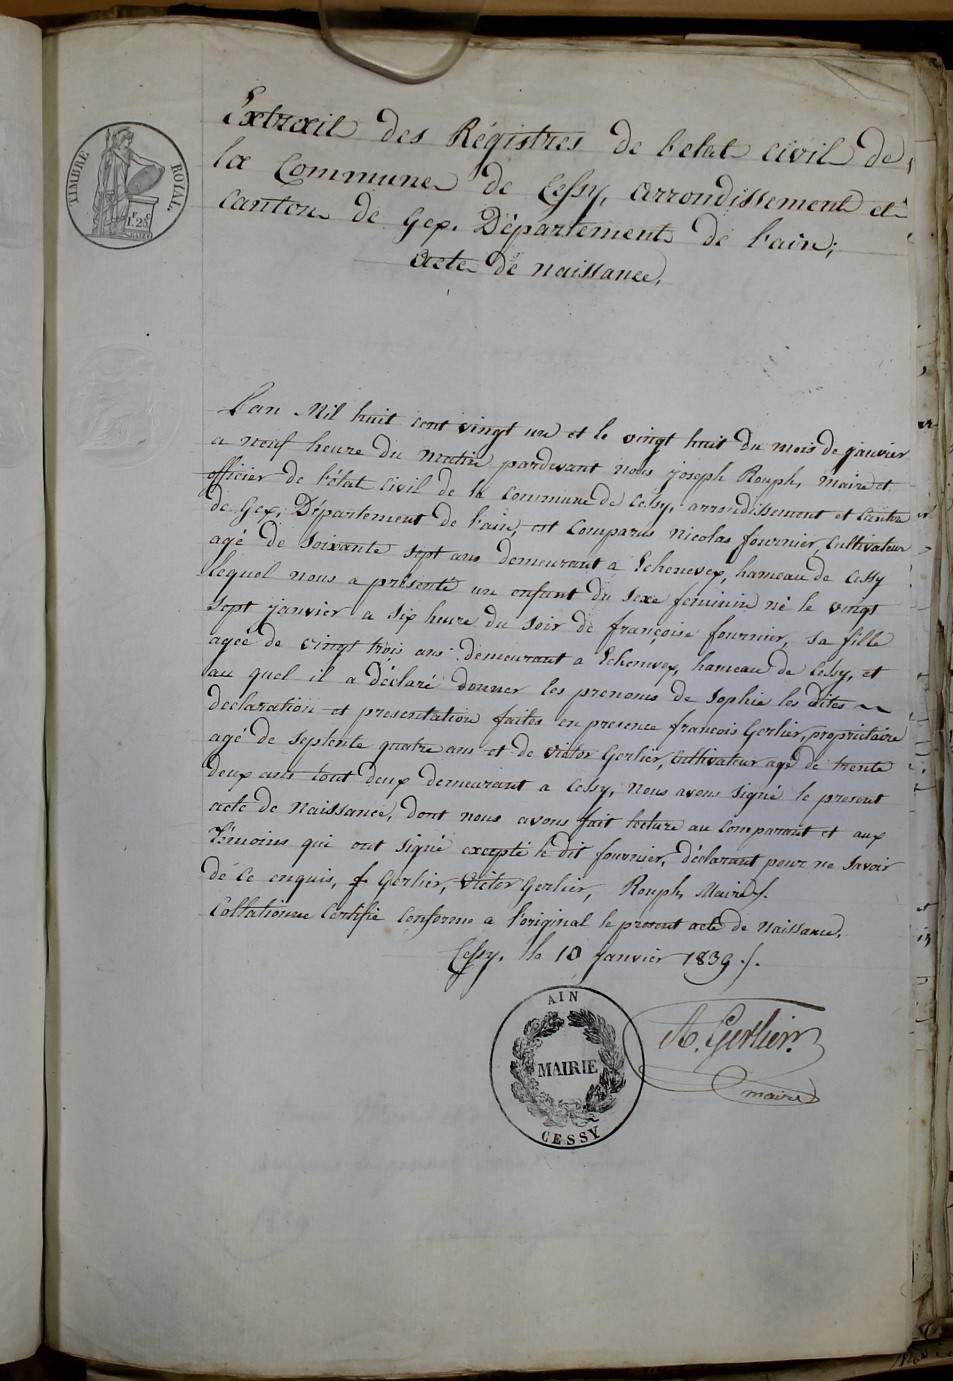 Extrait des Régistres de l'etat civil de
la Commune de Cessy, arrondissement et
Canton de Gex. Département de l'ain;
acte de naissance,
TIMBRE ROYAL.
1F.25C
L'an Mil huit cent vingt un et le vingt huit du mois de janvier
a neuf heure du matin pardevant nous joseph Rouph, maire et
officier de l'état civil de la Commune de Cessy, arrondissement et Canton
de Gex, Département de l'ain, est Comparus nicolas fournier, Cultivateur
agé de soixante sept ans demeurant a Echenevex, hameau de Cessy
lequel nous a présenté un enfant du sexe feminin né le vingt
sept janvier a six heure du soir de françoise fournier, sa fille
agée de vingt trois ans demeurant a Echenevex, hameau de Cessy, et
au quel il a déclaré donner les prenoms de Sophie les dites
declaration et presentation faites en presence françois Gerlier, propriétaire
agé de septente quatre ans et de victor Gerlier, Cultivateur agé de trente
deux ans tout deux demeurant a Cessy, nous avons signé le present
acte de Naissance, dont nous avons fait lecture au Comparant et aux
témoins qui ont signé excepté le dit fournier, déclarant pour ne savoir
de ce enquis, f Gerlier, Victor Gerlier, Rouph, Maire /.
Collationné Certifié Conforme a l'original le present acte de Naissance.
Cessy, le 10 janvier 1839 ./.
A. Gerlier
maire
AIN
MAIRIE
CESSY